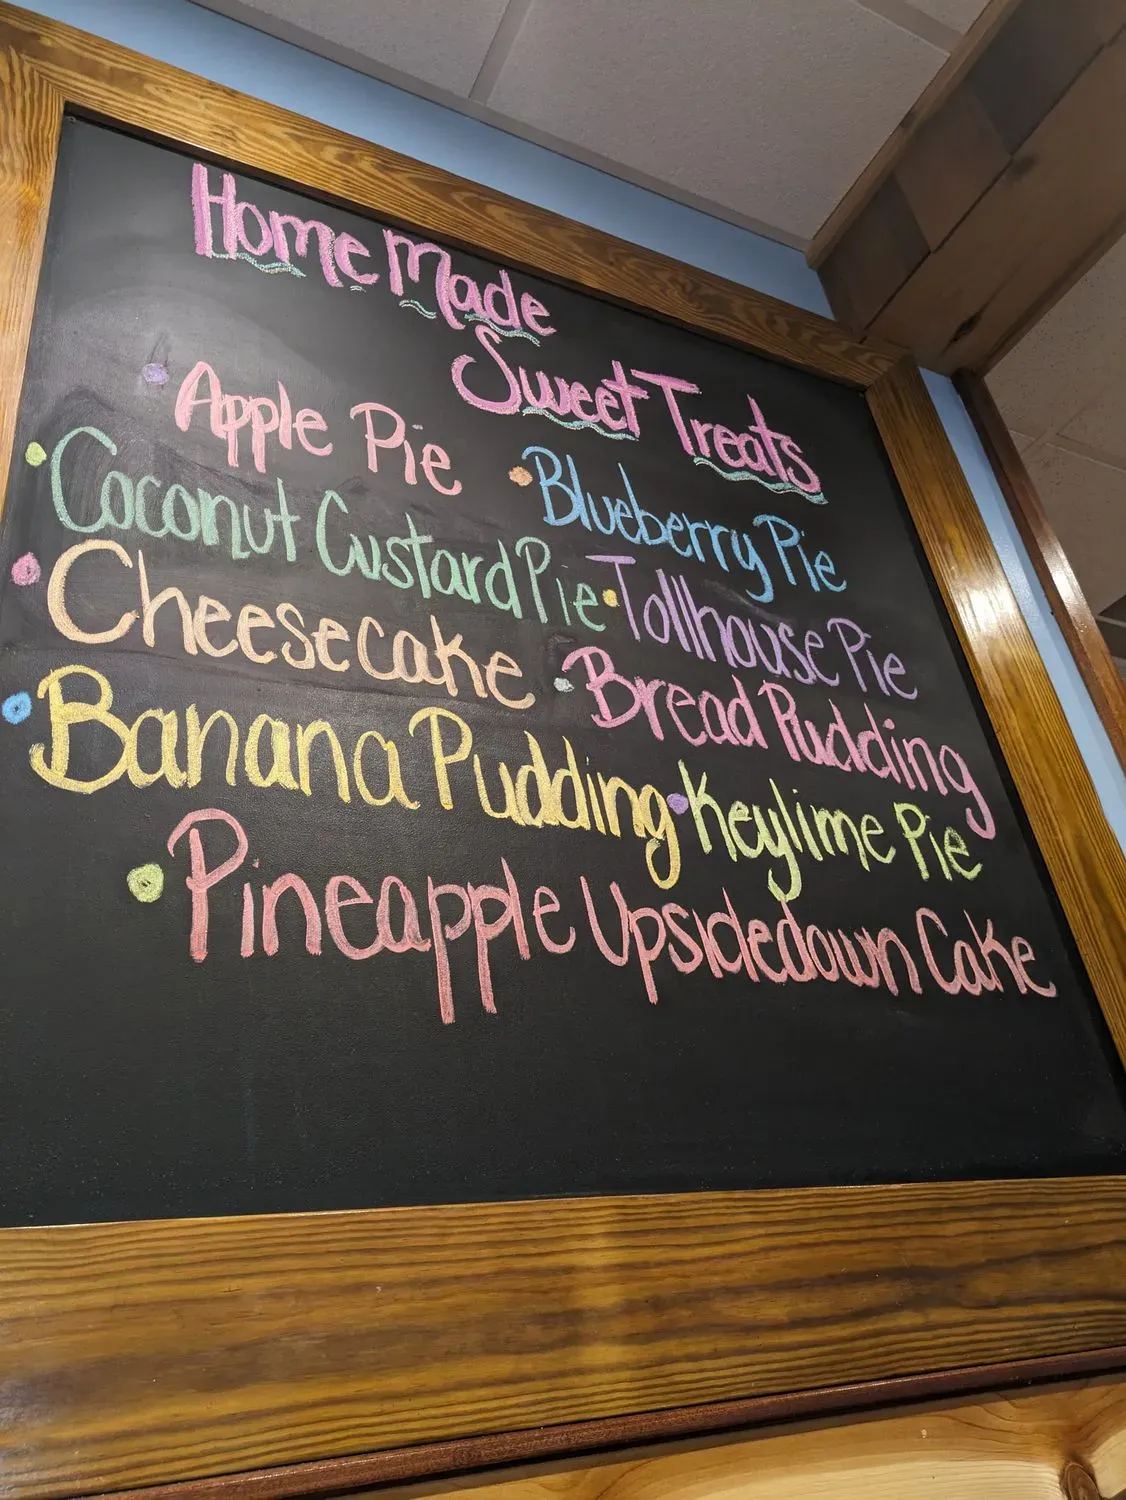 Home Made
Sweet Treats
• Apple Pie
• Blueberry Pie
• Coconut Custard Pie
• Tollhouse Pie
• Cheesecake
• Bread Pudding
• Banana Pudding
• Keylime Pie
• Pineapple Upsidedown Cake